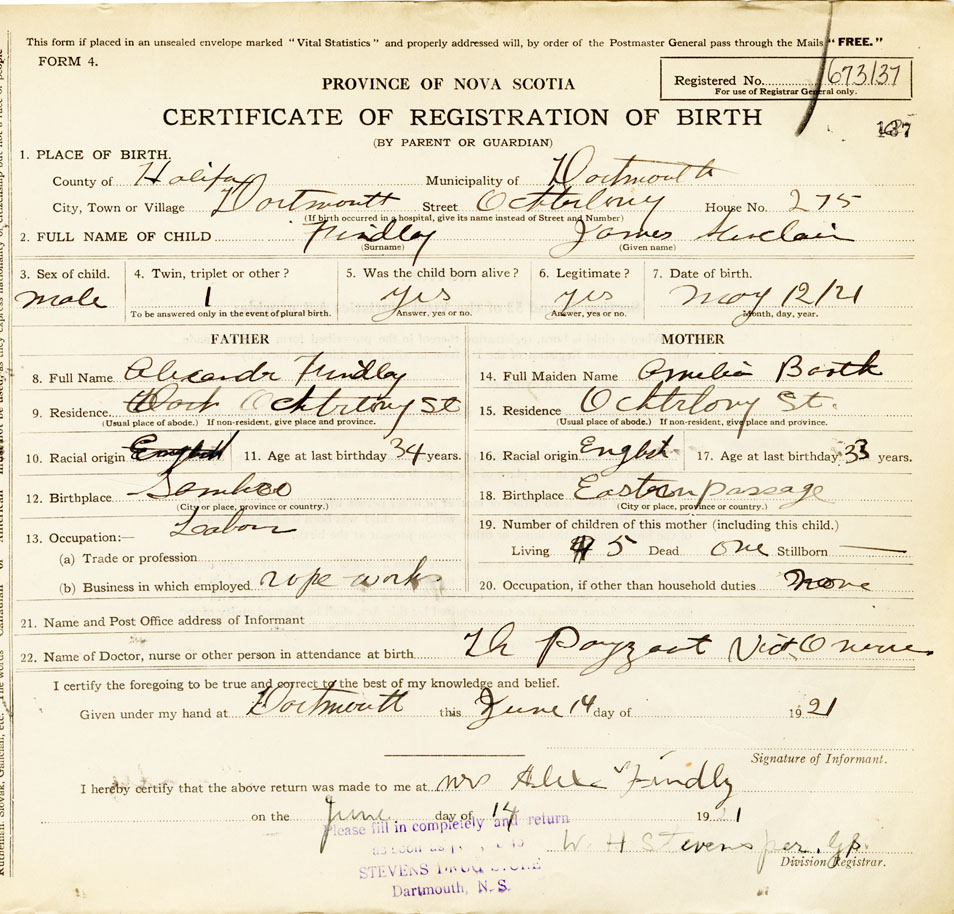 This form if placed in an unsealed envelope marked "Vital Statistics" and properly addressed will, by order of the Postmaster General pass through the Mails "FREE."
FORM 4.
PROVINCE OF NOVA SCOTIA
Registered No. 673/37
For use of Registrar General only.
CERTIFICATE OF REGISTRATION OF BIRTH
(BY PARENT OR GUARDIAN)
1. PLACE OF BIRTH.
County of Halifax Municipality of Dartmouth
City, Town or Village Dartmouth Street Ochterlony House No. 275
(If birth occurred in a hospital, give its name instead of Street and Number)
2. FULL NAME OF CHILD Findlay James Sinclair
(Surname) (Given name)
3. Sex of child. 4. Twin, triplet or other? 5. Was the child born alive? 6. Legitimate? 7. Date of birth.
male 1 yes yes May 12/21
To be answered only in the event of plural birth. Answer, yes or no. Answer, yes or no. Month, day, year.
FATHER MOTHER
8. Full Name Findlay 14. Full Maiden Name Amelia
9. Residence Ochterlony St 15. Residence Ochterlony St.
(Usual place of abode.) If non-resident, give place and province. (Usual place of abode.) If non-resident, give place and province.
10. Racial origin English 11. Age at last birthday 34 years. 16. Racial origin English 17. Age at last birthday 33 years.
12. Birthplace 18. Birthplace Eastern passage
(City or place, province or country.) (City or place, province or country.)
13. Occupation:— Labour 19. Number of children of this mother (including this child.)
(a) Trade or profession Living 5 Dead one Stillborn —
(b) Business in which employed rope works 20. Occupation, if other than household duties None
21. Name and Post Office address of Informant
22. Name of Doctor, nurse or other person in attendance at birth Payzant
I certify the foregoing to be true and correct to the best of my knowledge and belief.
Given under my hand at Dartmouth this June 14 day of 1921
Signature of Informant.
I hereby certify that the above return was made to me at Mrs Alex Findly
on the June day of 14 1921
Please fill in completely and return
as soon as
STEVENS DRUG STORE
Dartmouth, N. S.
W. H Stevens per.
Division Registrar.